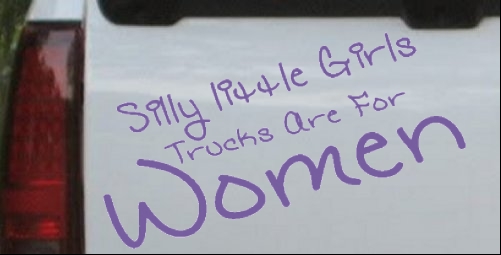 Silly little Girls
Trucks Are For
Women